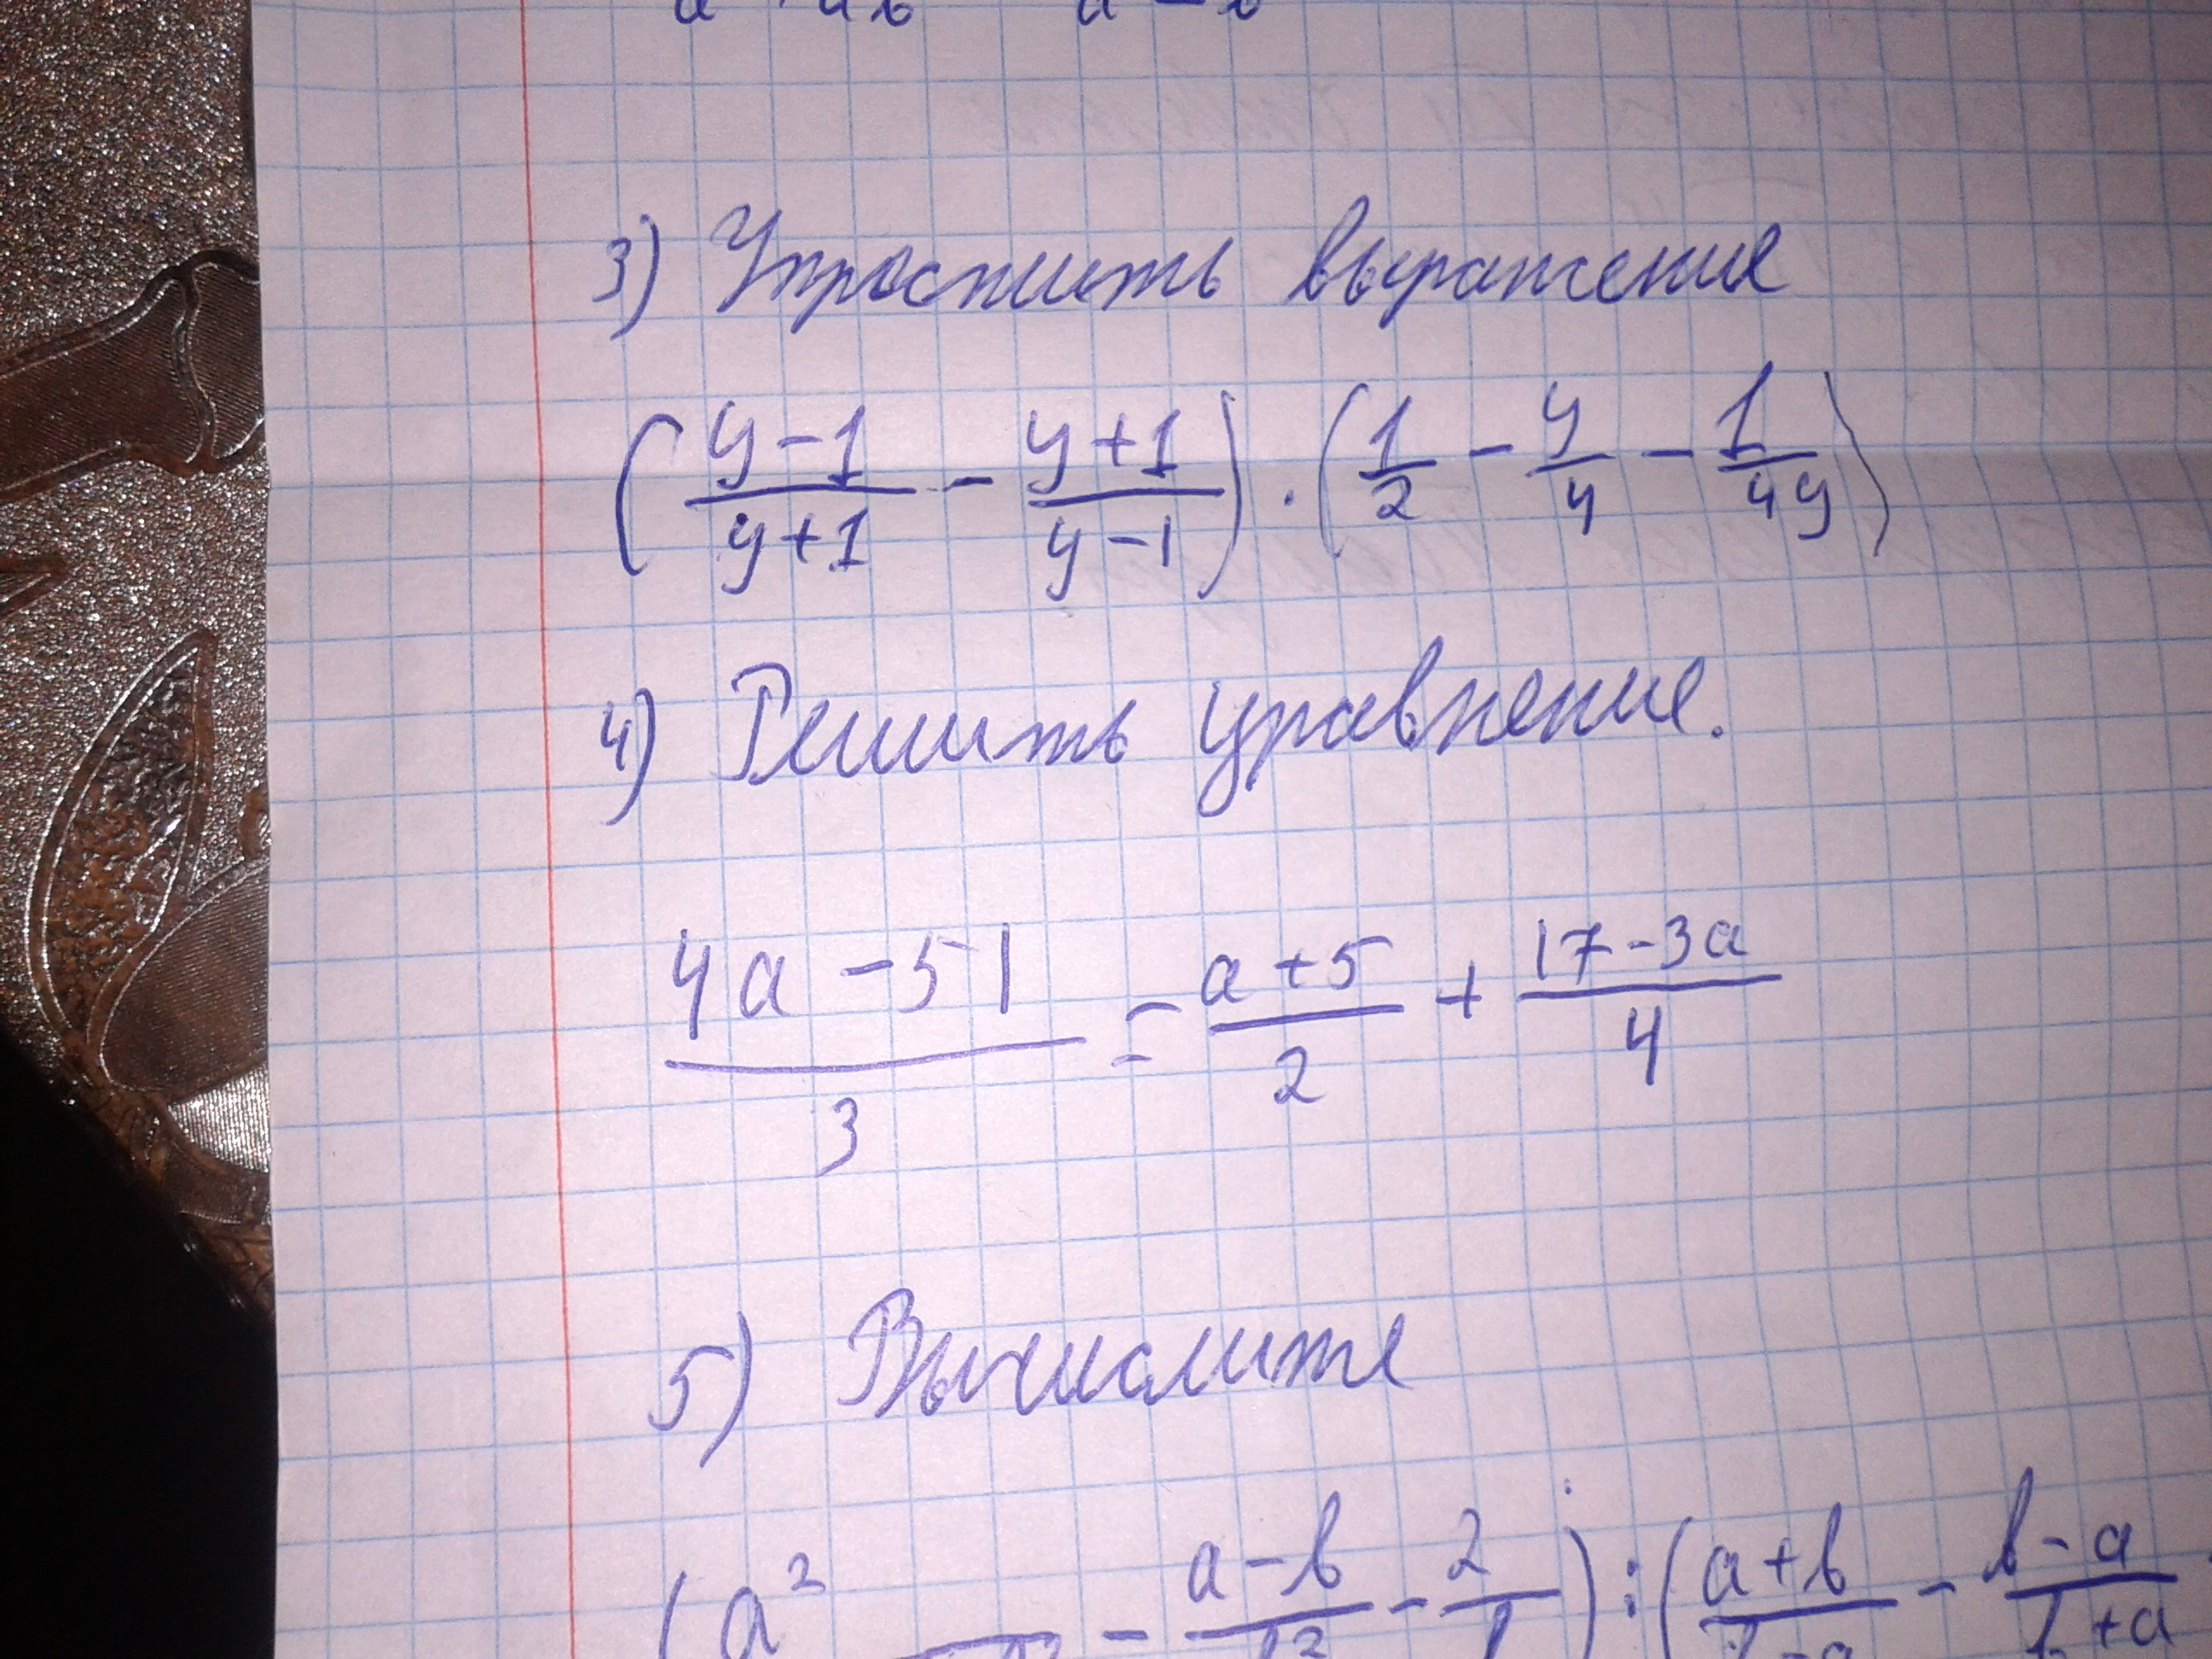 3) Упростить выражение
(y-1/y+1 - y+1/y-1) · (1/2 - y/4 - 1/4y)
4) Решить уравнение.
4a-51/3 = a+5/2 + 17-3a/4
5) Вычислите
(a² - a-b - 2) : (a+b - b-a
b+a